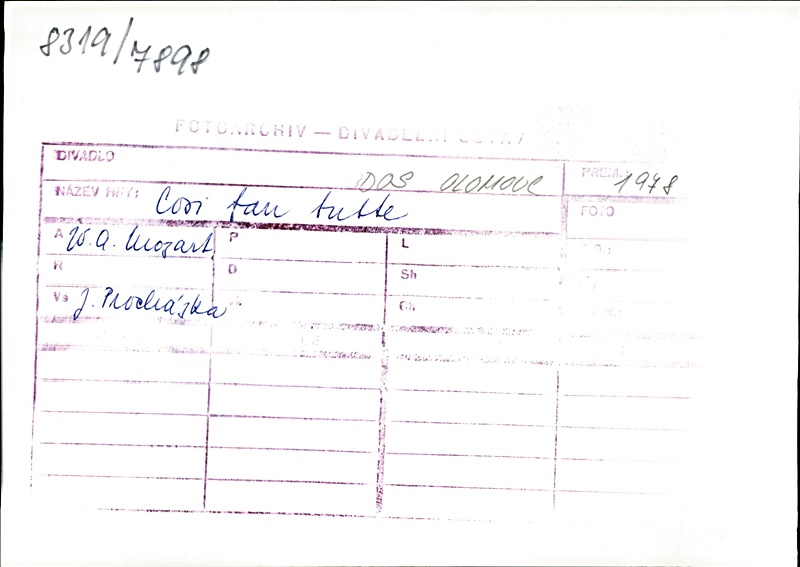 8319/7898
FOTOARCHIV — DIVADELNÍ ÚSTAV
DIVADLO DOS OLOMOUC PREM.: 1978
NÁZEV HRY: Cosi fan tutte FOTO
A W. A. Mozart P L
R D Sh
Vs J. Procházka Ch